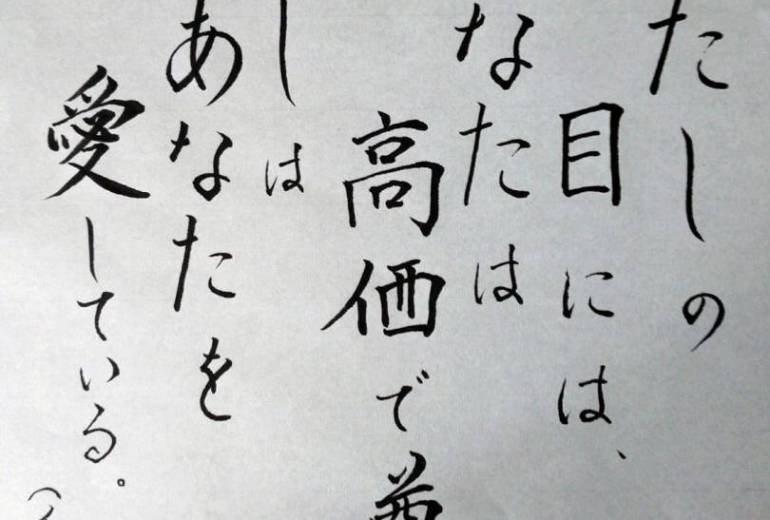 たしの
目には、
なたは
高価で尊
しは
あなたを
愛している。